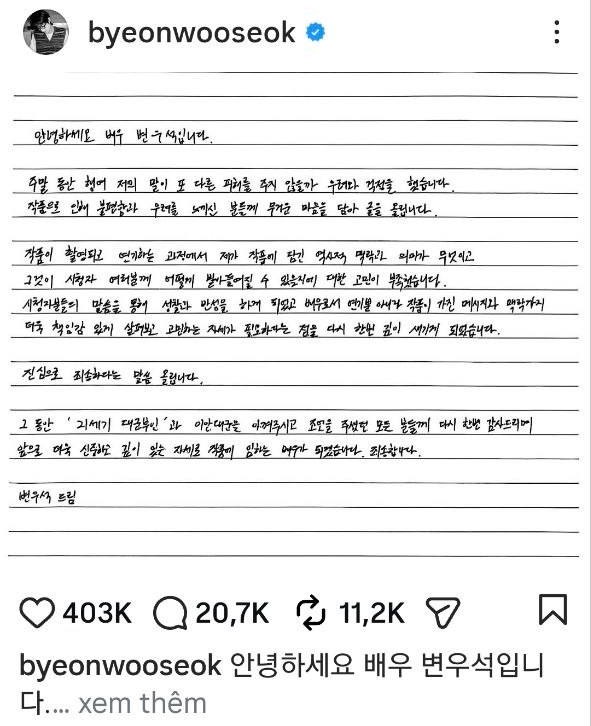 byeonwooseok
안녕하세요 배우 변우석입니다.
주말 동안 행여 저의 말이 또 다른 피해를 주지 않을까 우려와 걱정을 했습니다.
작품으로 인해 불편함과 우려를 느끼신 분들께 무거운 마음을 담아 글을 올립니다.
작품이 촬영되고 연기하는 과정에서 제가 작품에 담긴 역사적 맥락과 의미가 무엇이고
그것이 시청자 여러분께 어떻게 받아들여질 수 있을지에 대한 고민이 부족했습니다.
시청자분들의 말씀을 통해 성찰과 반성을 하게 되었고 배우로서 연기뿐 아니라 작품이 가진 메시지와 맥락까지
더욱 책임감 있게 살펴보고 고민하는 자세가 필요하다는 점을 다시 한번 깊이 새기게 되었습니다.
진심으로 죄송하다는 말씀 올립니다.
그 동안 '21세기 대군부인'과 이안대군을 아껴주시고 조언을 주셨던 모든 분들께 다시 한번 감사드리며
앞으로 더욱 신중하고 깊이 있는 자세로 작품에 임하는 배우가 되겠습니다. 죄송합니다.
변우석 드림
403K 20,7K 11,2K
byeonwooseok 안녕하세요 배우 변우석입니
다.... xem thêm